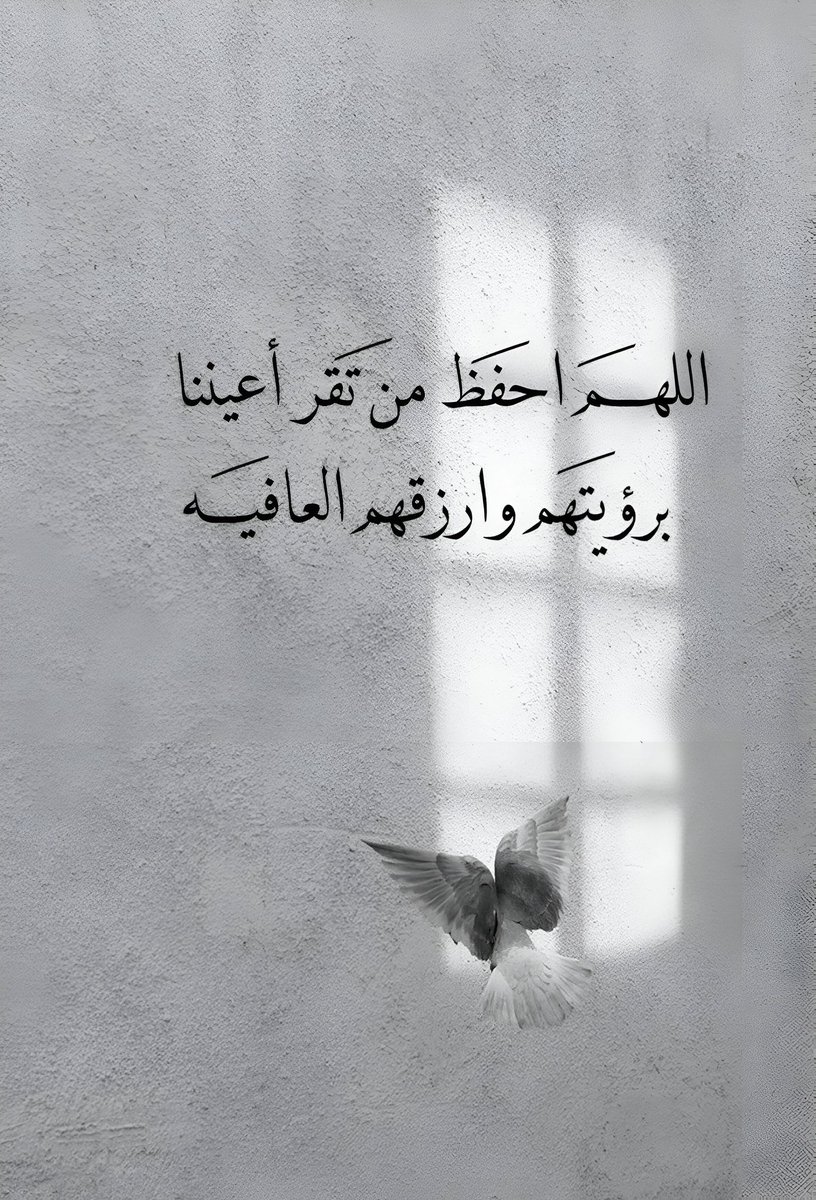 اللهم احفظ من تقر أعيننا
برؤيتهم وارزقهم العافيه